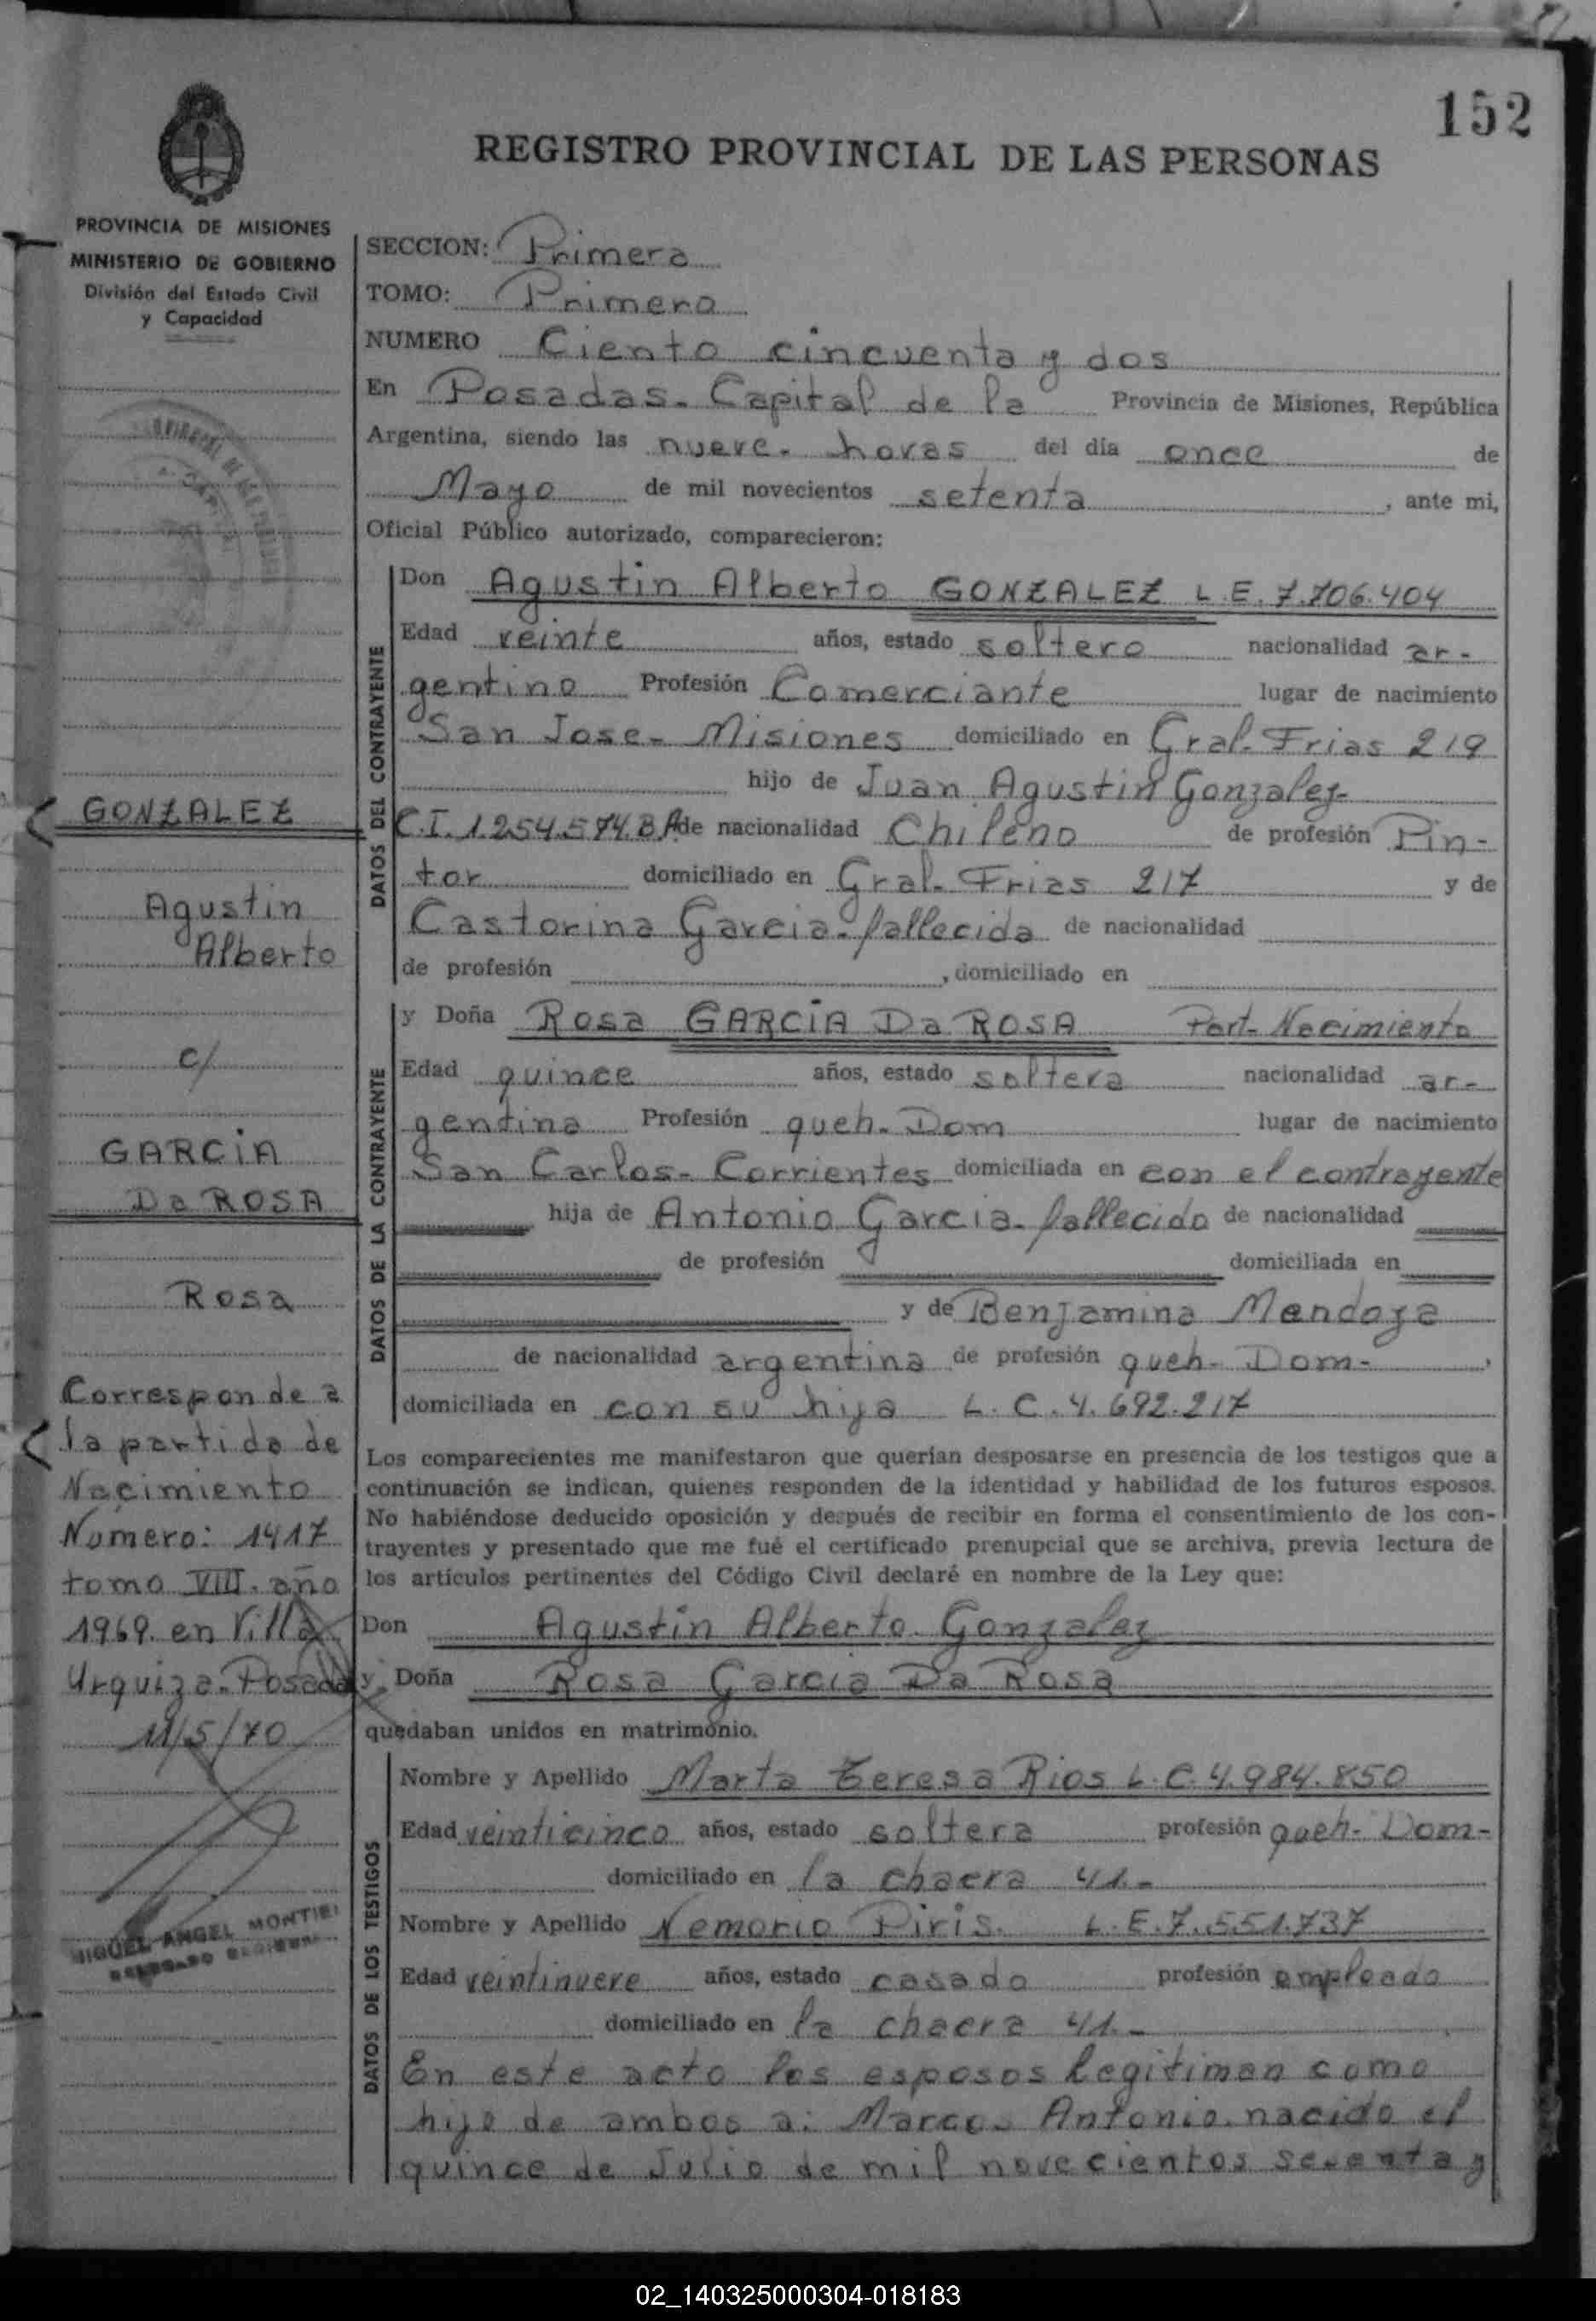 152
REGISTRO PROVINCIAL DE LAS PERSONAS
PROVINCIA DE MISIONES
MINISTERIO DE GOBIERNO
División del Estado Civil
y Capacidad
GONZALEZ
Agustin
Alberto
c/
GARCIA
Da ROSA
Rosa
Corresponde a
la partida de
Nacimiento
Número: 1417
tomo VIII. año
1969. en Villa
Urquiza. Posadas
11/5/70
MIGUEL ANGEL MONTIEL
SECCION: Primera
TOMO: Primero
NUMERO Ciento cincuenta y dos
En Posadas. Capital de la Provincia de Misiones, República
Argentina, siendo las nueve. horas del día once de
Mayo de mil novecientos setenta, ante mi,
Oficial Público autorizado, comparecieron:
DATOS DEL CONTRAYENTE
Don Agustin Alberto GONZALEZ L.E. 7.706.404
Edad veinte años, estado soltero nacionalidad ar-
gentino Profesión Comerciante lugar de nacimiento
San Jose- Misiones domiciliado en Gral. Frias 219
hijo de Juan Agustin Gonzalez
C.I. 1.254.574.B.A de nacionalidad Chileno de profesión Pin-
tor domiciliado en Gral. Frias 217 y de
Castorina Garcia. fallecida de nacionalidad
de profesión , domiciliado en
DATOS DE LA CONTRAYENTE
y Doña Rosa GARCIA Da ROSA Part. Nacimiento
Edad quince años, estado soltera nacionalidad ar-
gentina Profesión queh. Dom lugar de nacimiento
San Carlos- Corrientes domiciliada en con el contrayente
hija de Antonio Garcia. fallecido de nacionalidad
de profesión domiciliada en
y de Benjamina Mendoza
de nacionalidad argentina de profesión queh. Dom- ,
domiciliada en con su hija L.C. 4.692.217
Los comparecientes me manifestaron que querían desposarse en presencia de los testigos que a
continuación se indican, quienes responden de la identidad y habilidad de los futuros esposos.
No habiéndose deducido oposición y después de recibir en forma el consentimiento de los con-
trayentes y presentado que me fué el certificado prenupcial que se archiva, previa lectura de
los artículos pertinentes del Código Civil declaré en nombre de la Ley que:
Don Agustin Alberto Gonzalez
y Doña Rosa Garcia Da Rosa
quedaban unidos en matrimonio.
DATOS DE LOS TESTIGOS
Nombre y Apellido Marta Teresa Rios L.C. 4.984.850
Edad veinticinco años, estado soltera profesión queh. Dom-
domiciliado en la chacra 41.-
Nombre y Apellido Nemorio Piris. L.E. 7.551.737
Edad veintinueve años, estado casado profesión empleado
domiciliado en la chacra 41.-
En este acto los esposos legitiman como
hijo de ambos a: Marcos Antonio. nacido el
quince de Julio de mil novecientos sesenta y
02_140325000304-018183